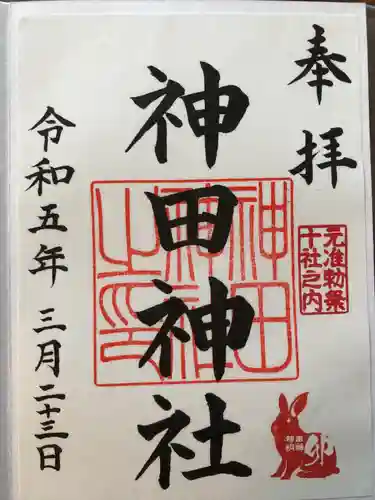 奉拝
元准勅祭
十社之内
神田神社
神田神社之印
卯
令和五年 三月二十三日